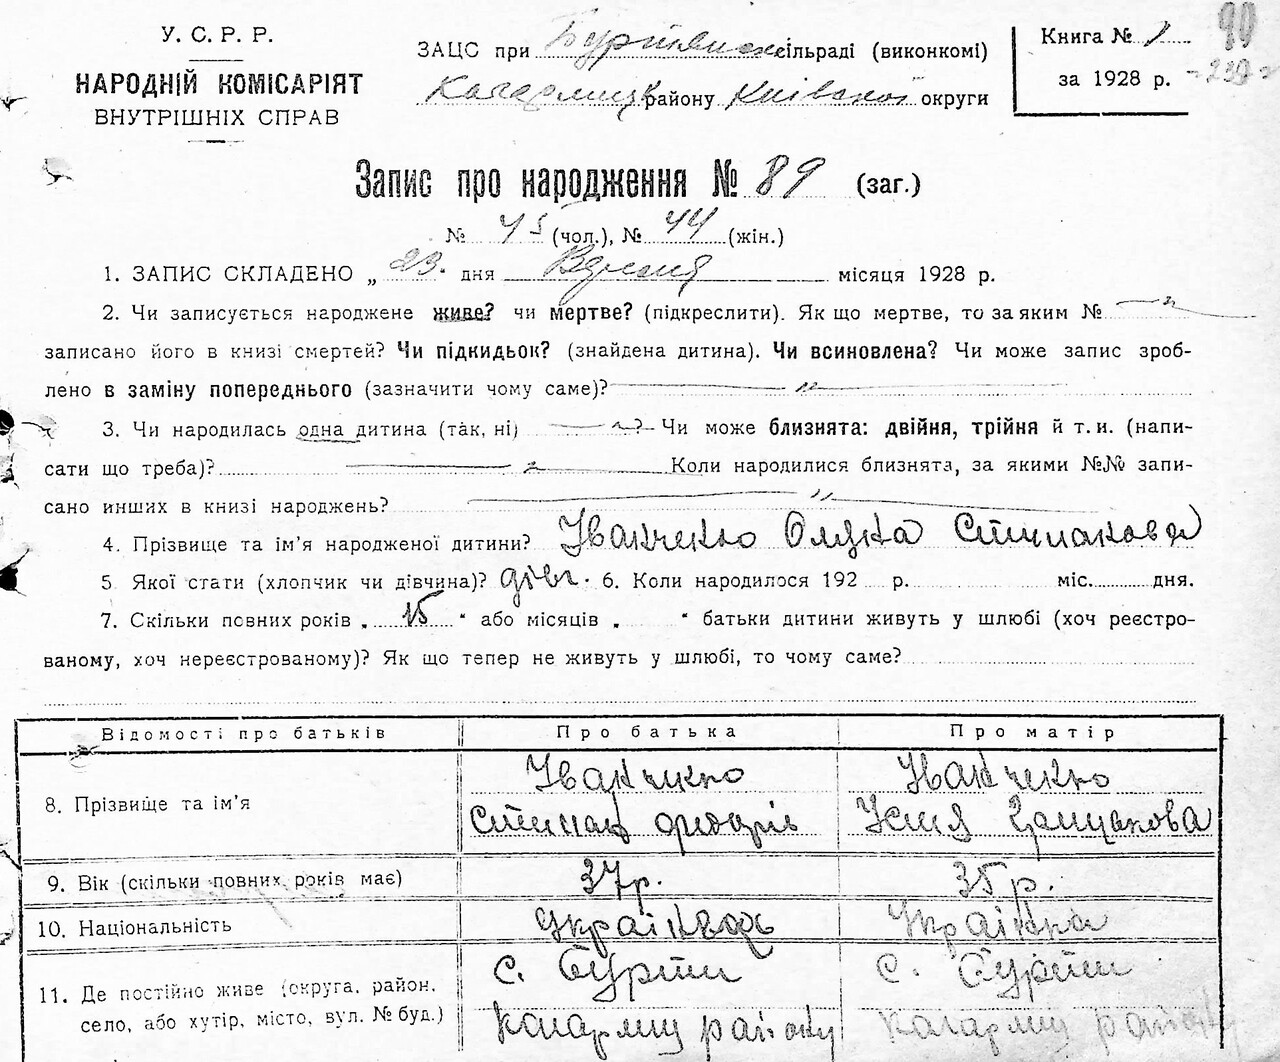 У. С. Р. Р.
НАРОДНІЙ КОМІСАРІЯТ
ВНУТРІШНІХ СПРАВ
ЗАЦС при Буртянськ сільраді (виконкомі)
Кагарлицьк району Київської округи
Книга № 1
за 1928 р.
90
= 239 =
Запис про народження № 89 (заг.)
№ 45 (чол.), № 44 (жін.)
1. ЗАПИС СКЛАДЕНО „ 23. дня Вересня місяця 1928 р.
2. Чи записується народжене живе? чи мертве? (підкреслити). Як що мертве, то за яким №
записано його в книзі смертей? Чи підкидьок? (знайдена дитина). Чи всиновлена? Чи може запис зроб-
лено в заміну попереднього (зазначити чому саме)?
3. Чи народилась одна дитина (так, ні) ? Чи може близнята: двійня, трійня й т. и. (напи-
сати що треба)? Коли народилися близнята, за якими №№ запи-
сано инших в книзі народжень?
4. Прізвище та ім'я народженої дитини? Іванченко Оляна Степанова
5 Якої стати (хлопчик чи дівчина)? дівч. 6. Коли народилося 192 р. міс. дня.
7. Скільки повних років „ 15 " або місяців „ " батьки дитини живуть у шлюбі (хоч реєстро-
ваному, хоч нереєстрованому)? Як що тепер не живуть у шлюбі, то чому саме?
Відомості про батьків Про батька Про матір
8. Прізвище та ім'я
Іванченко
Степан
Іванченко
9. Вік (скільки повних років має) 37р. 35р.
10. Національність Українець Українка
11. Де постійно живе (округа, район,
село, або хутір, місто, вул. № буд.)
с. Бурти
Кагарлиц району
с. Бурти
Кагарлиц району